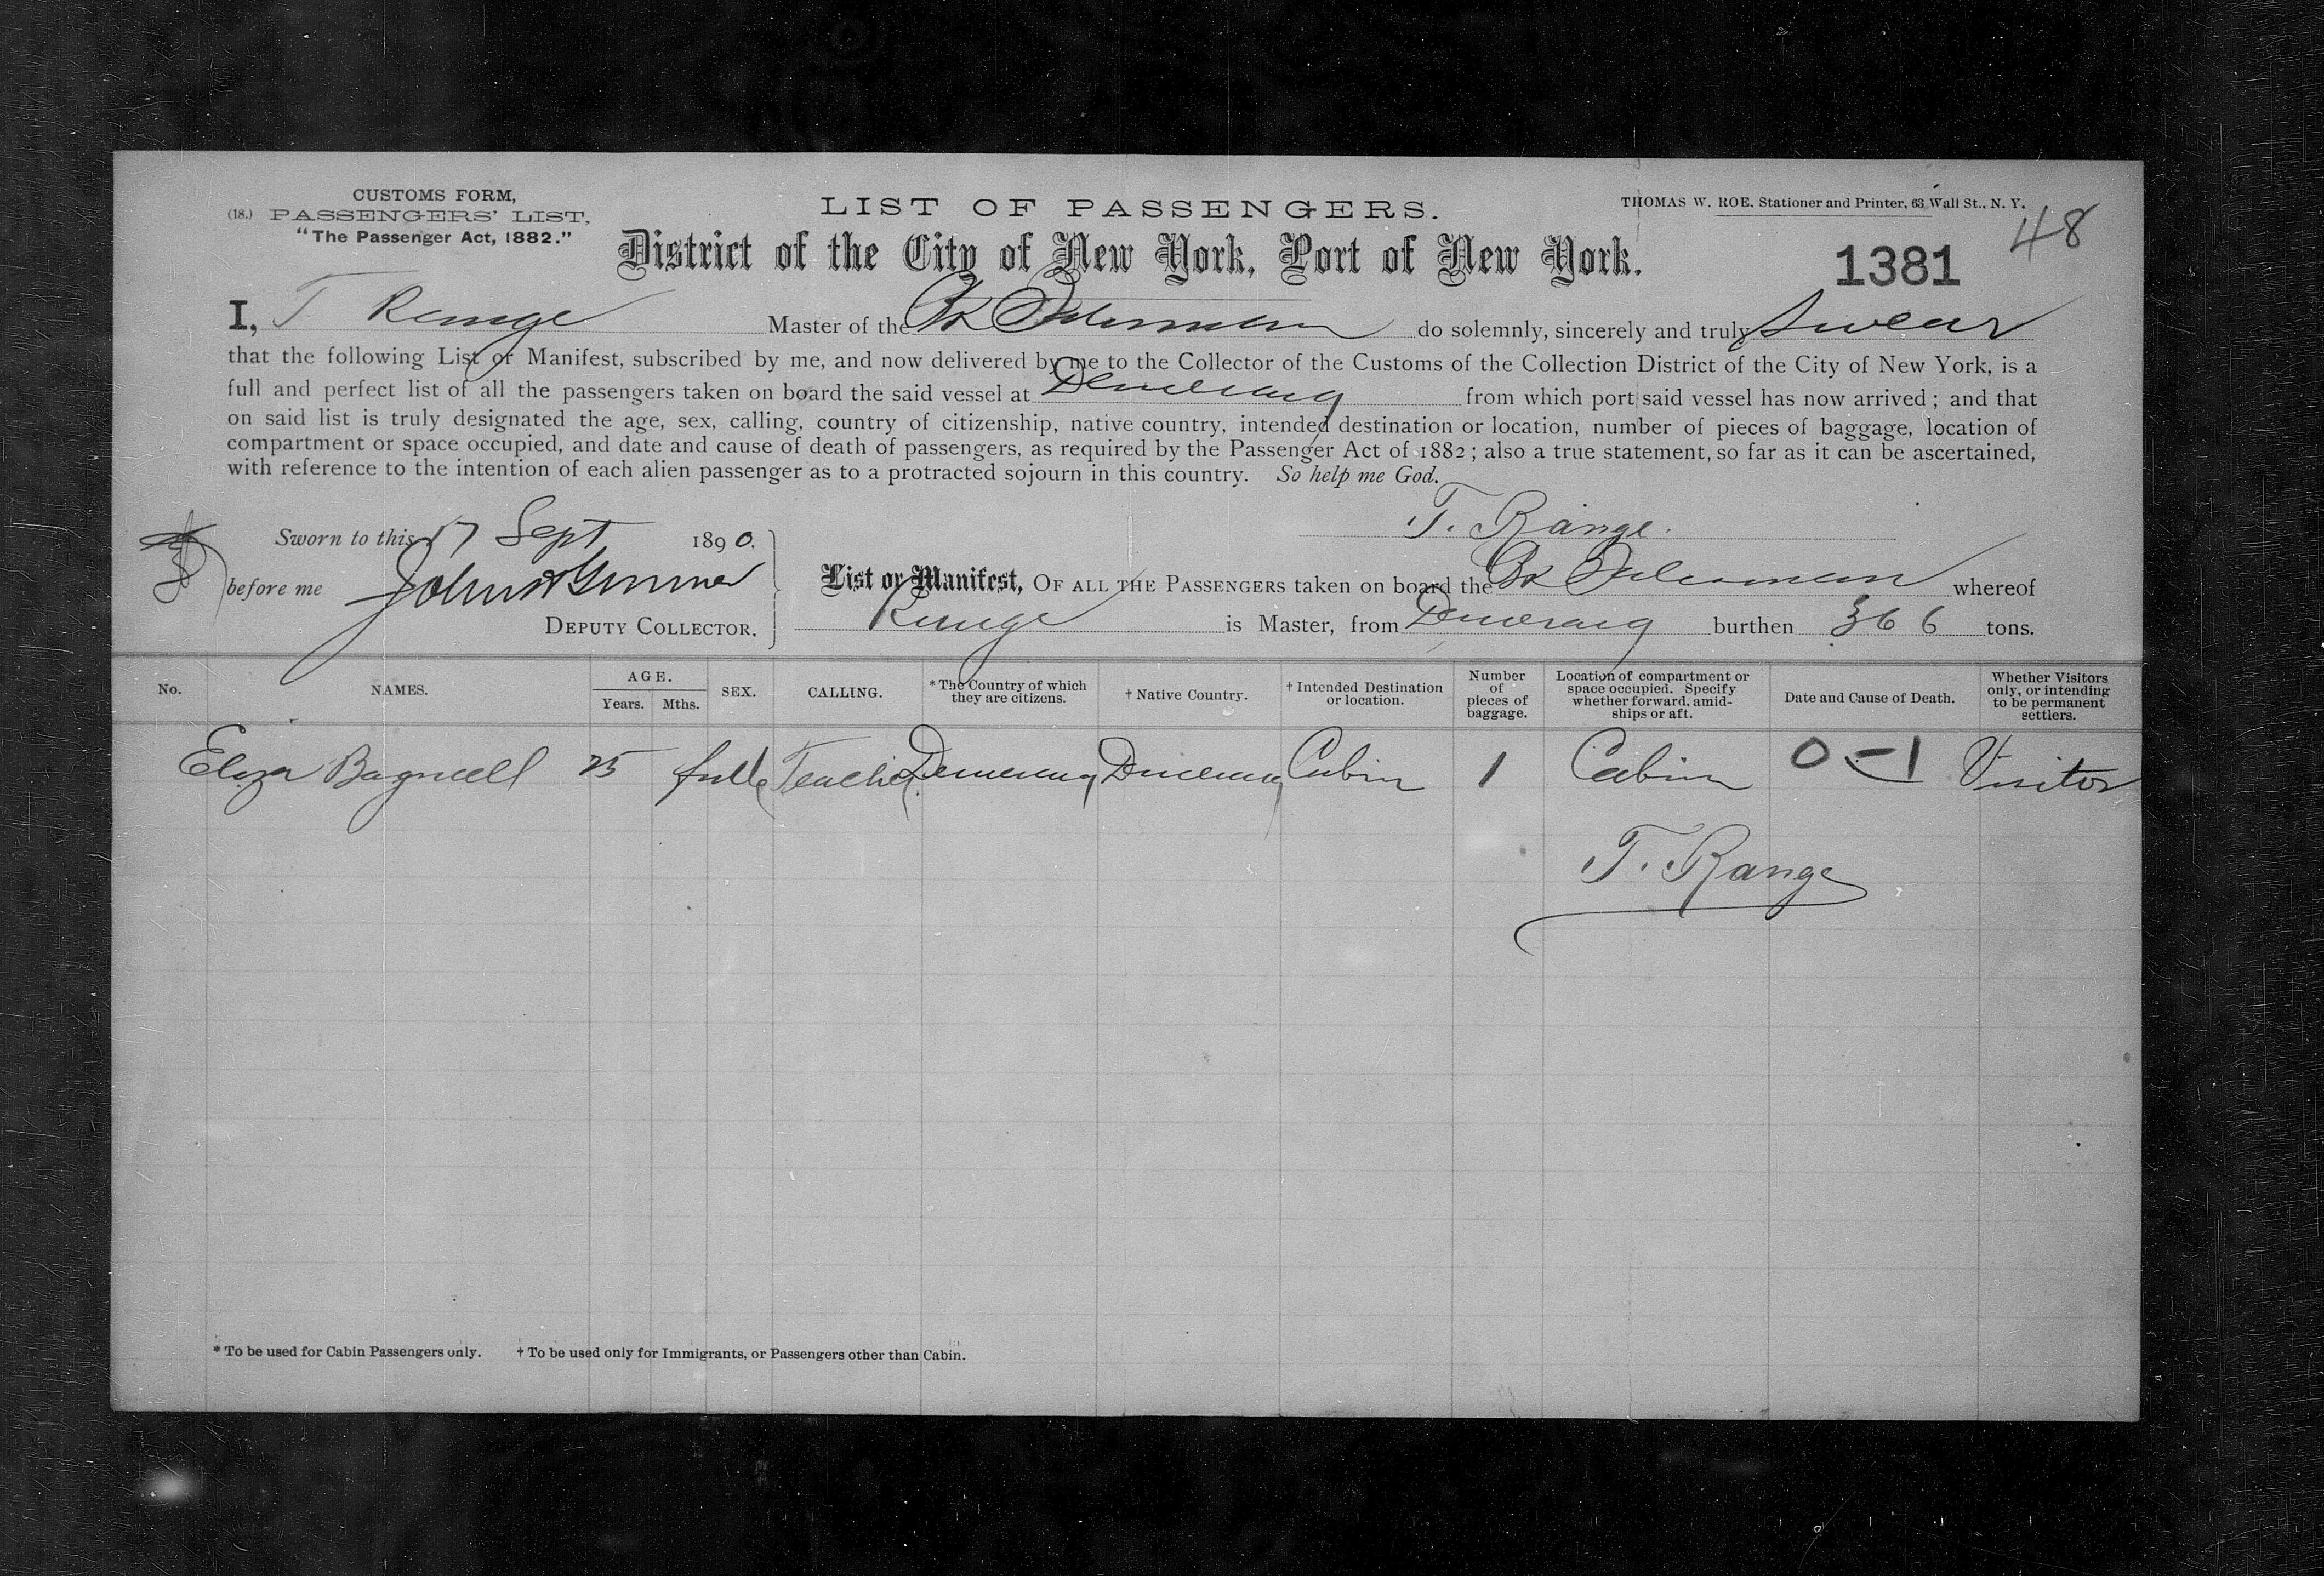 CUSTOMS FORM,
(18.) PASSENGERS' LIST.
"The Passenger Act, 1882."
LIST OF PASSENGERS.
THOMAS W. ROE. Stationer and Printer, 63 Wall St., N. Y.
48
District of the City of New York, Port of New York.
1381
I, T Range Master of the Bk do solemnly, sincerely and truly swear
that the following List or Manifest, subscribed by me, and now delivered by me to the Collector of the Customs of the Collection District of the City of New York, is a
full and perfect list of all the passengers taken on board the said vessel at Demerary from which port said vessel has now arrived; and that
on said list is truly designated the age, sex, calling, country of citizenship, native country, intended destination or location, number of pieces of baggage, location of
compartment or space occupied, and date and cause of death of passengers, as required by the Passenger Act of 1882; also a true statement, so far as it can be ascertained,
with reference to the intention of each alien passenger as to a protracted sojourn in this country. So help me God.
T. Range.
Sworn to this 17 Sept 1890.
before me John
DEPUTY COLLECTOR.
List or Manifest, OF ALL THE PASSENGERS taken on board the Bk whereof
Range is Master, from Demerary burthen 366 tons.
No. NAMES. AGE. Years. Mths. SEX. CALLING. * The Country of which they are citizens. † Native Country. † Intended Destination or location. Number of pieces of baggage. Location of compartment or space occupied. Specify whether forward, amidships or aft. Date and Cause of Death. Whether Visitors only, or intending to be permanent settlers.
Eliza Bagnell 25 Teacher Demerary Demerary Cabin 1 Cabin 0-1 Visitor
T. Range
* To be used for Cabin Passengers only. † To be used only for Immigrants, or Passengers other than Cabin.